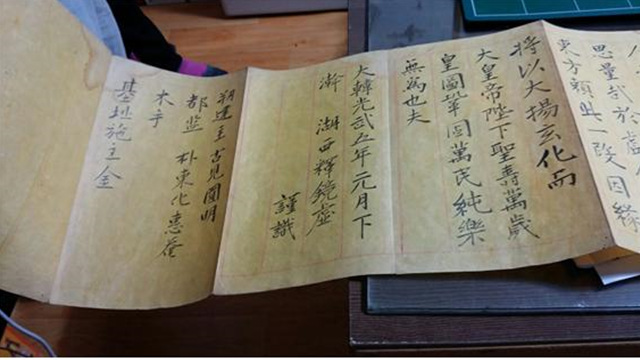 思量
東方願此一段因緣
將以大揚玄化而
大皇帝陛下聖壽萬歲
皇圖鞏固萬民純樂
無爲也夫
大韓光武五年元月下
澣 湖西釋鏡虛
謹識
剏建主 古見圓明
都監 朴東化
木手
基址施主金